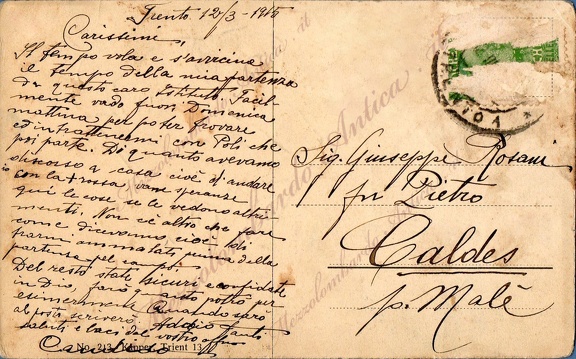 Trento 12/3-1915
Carissimi,
Il tempo vola e s'avvicina
il tempo della mia partenza
da questo caro Istituto. Facil-
mente vado fuori Domenica
mattina per poter trovare
ed intrattenermi con Poli che
poi parte. Di quanto avevamo
discorso a casa cioè di andare
con la vane speranze
qui le cose se le vedono altri-
menti. Non c'è altro che fare
come dicevamo cioè di
farmi ammalati prima della
partenza pel campo.
Del resto state sicuri e confidate
in Dio, farò quanto potrò per
esimermi. Quando sarò
al poi scriverò. Addio tanti
saluti e baci dal vostro aff.
No. 213. Kapper, Trient 13
Sig. Giuseppe Rosani
fu Pietro
Caldes
p. Malè